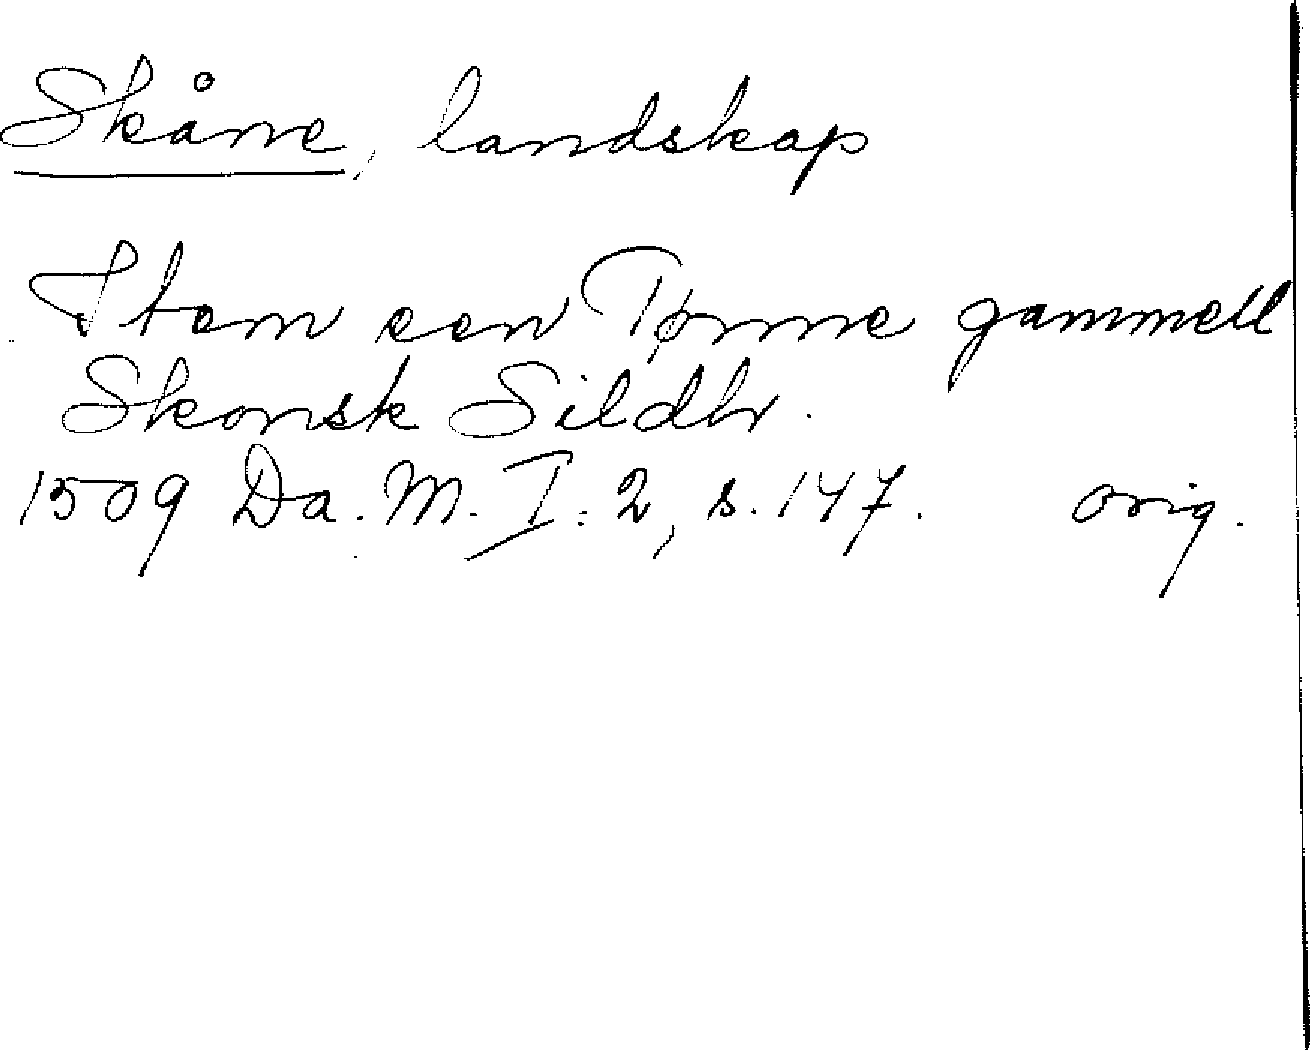 Skåne, landskap
Item een Tønne gammell
Skonsk Sildh.
1509 Da. M. I. 2, s. 147. orig.